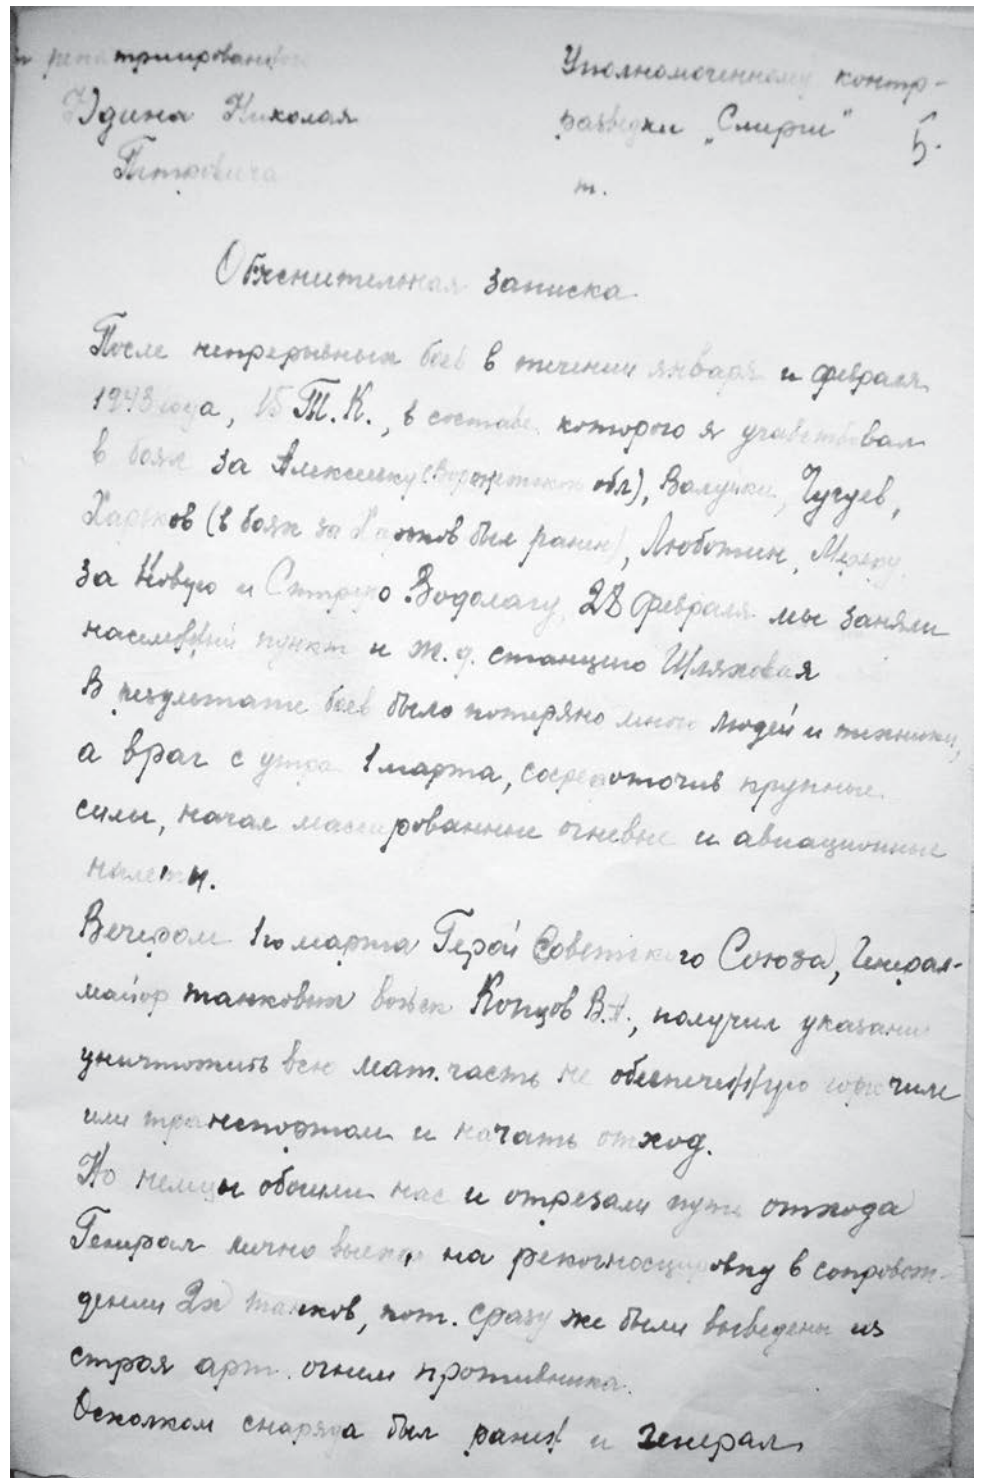 репатриированного
Юдина Николая
Петровича
Уполномоченному контр-
разведки „Смерш"
т.
5.
Обяснительная записка
После непрерывных боев в течении января и февраля
1943 года, 15 Т.К., в составе которого я учавствовал
в боях за Алексеевку (Воронежской обл), Валуйки, Чугуев,
Харьков (в боях за Харьков был ранен), Люботин, Мерефу,
за Новую и Старую Водолагу, 28 февраля мы заняли
населенный пункт и ж.д. станцию Шляховая
В результате боев было потеряно много людей и техники,
а враг с утра 1 марта, сосредоточив крупные
силы, начал массированные огневые и авиационные
налеты.
Вечером 1го марта Герой Советского Союза, Генерал-
майор танковых войск Копцов В.А., получил указание
уничтожить всю мат. часть не обеспеченную горючим
или транспортом и начать отход.
Но немцы обошли нас и отрезали пути отхода
Генерал лично выехал на рекогносцировку в сопровож-
дении 2х танков, кот. сразу же были выведены из
строя арт. огнем противника.
Осколком снаряда был ранен и генерал